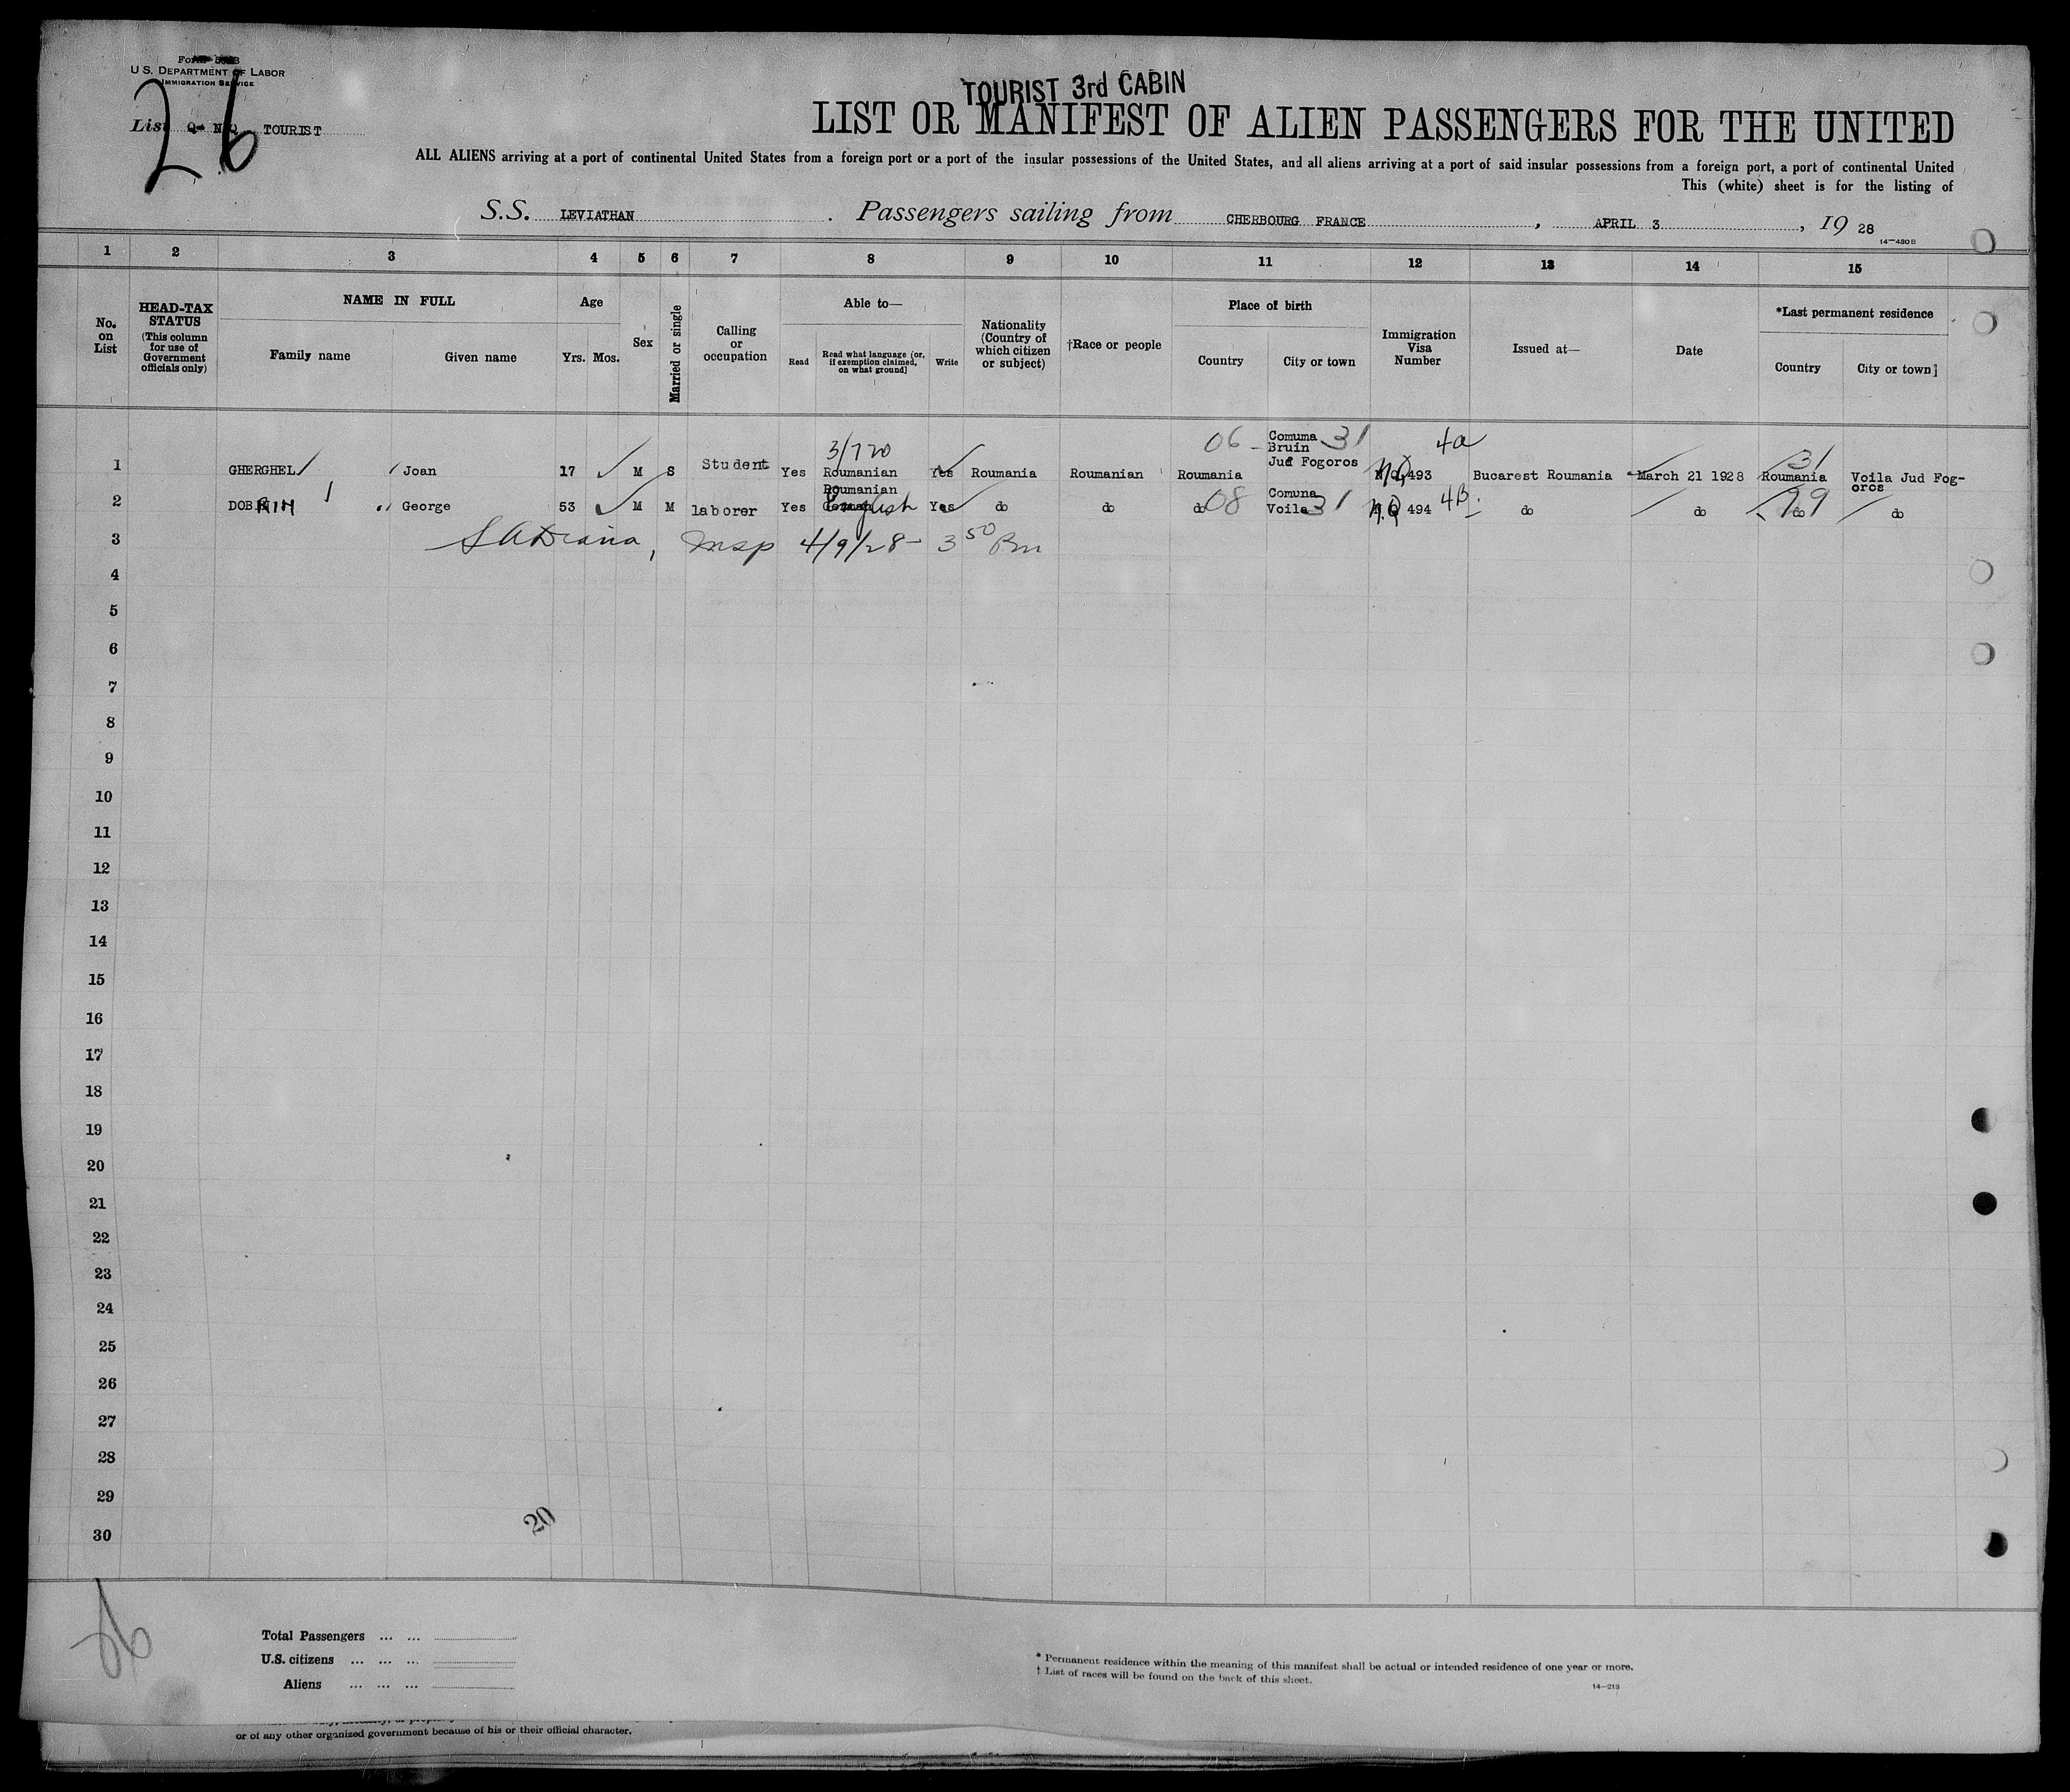 U.S. DEPARTMENT OF LABOR
IMMIGRATION SERVICE
List TOURIST
26
TOURIST 3rd CABIN
LIST OR MANIFEST OF ALIEN PASSENGERS FOR THE UNITED
ALL ALIENS arriving at a port of continental United States from a foreign port or a port of the insular possessions of the United States, and all aliens arriving at a port of said insular possessions from a foreign port, a port of continental United
This (white) sheet is for the listing of
S.S. LEVIATHAN . Passengers sailing from CHERBOURG FRANCE , APRIL 3 , 19 28
14—480 B
1 2 3 4 5 6 7 8 9 10 11 12 13 14 15
No. on List
HEAD-TAX STATUS (This column for use of Government officials only)
NAME IN FULL
Family name Given name
Age
Yrs. Mos.
Sex
Married or single
Calling or occupation
Able to—
Read Read what language (or, if exemption claimed, on what ground) Write
Nationality (Country of which citizen or subject)
†Race or people
Place of birth
Country City or town
Immigration Visa Number
Issued at—
Date
*Last permanent residence
Country City or town
3/720 06 - Comuma 31 4a
Bruin
Jud Fogoros 31
1 GHERGHEL Joan 17 M S Student Yes Roumanian Yes Roumania Roumanian Roumania NQ 493 Bucarest Roumania March 21 1928 Roumania Voila Jud Fog-
oros
Roumanian
2 DOBRIN George 53 M M laborer Yes English Yes do do do 08 Comuna Voila 31 N.Q 494 4B do do do 99 do
3 Insp 4/9/28 - 3 50 Pm
4
5
6
7
8
9
10
11
12
13
14
15
16
17
18
19
20
21
22
23
24
25
26
27
28
29
30
20
26
Total Passengers ... ...
U.S. citizens ... ... ...
Aliens ... ... ...
* Permanent residence within the meaning of this manifest shall be actual or intended residence of one year or more.
† List of races will be found on the back of this sheet.
14—213
or of any other organized government because of his or their official character.